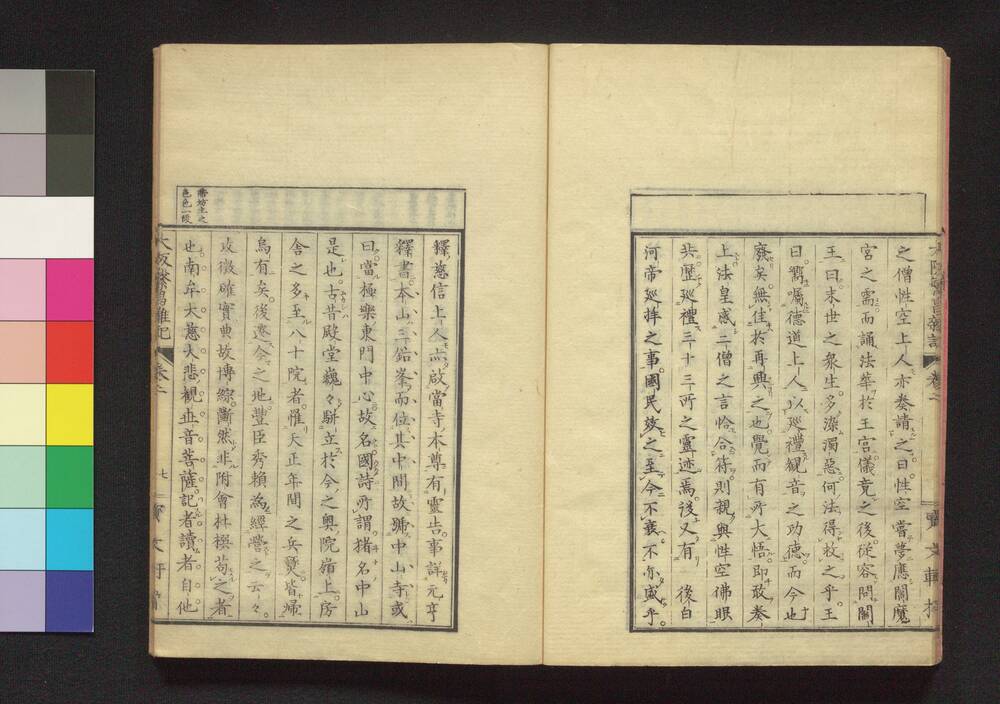 之僧性空上人亦奏請之曰性空嘗夢應閻魔
宮之需而誦法華於王宮儀竟之後從容問閻
王曰末世之衆生多染濁惡何法得救之乎王
曰嘱德道上人以巡禮觀音之功德而今也
廢矣無佳於再興之也覺而有所大悟即敢奏
上法皇感二僧之言恰合符則親與性空佛眼
共歷巡禮三十三所之靈迹焉後又有 後白
河帝巡拜之事國民效之至今不衰不亦盛乎
釋慈信上人啟當寺本尊有靈告事詳元亨
釋書本山三鉛峯而位其中間故號中山寺或
曰當極樂東門中心故名國詩所謂猪名中山
是也古昔殿堂巍々駢立於今之奧院嶺上房
舍之多至八十院者惟天正年間之兵燹皆歸
烏有矣後遷今之地豐臣秀賴為經營之云々
攻徵唯實典故博綜斷然非附會杜撰苟之者
也南牟大慈大悲觀世音菩薩記者讀者自他
齋坊主之
色色一段
大阪繁昌雜記 卷二 七 寶文軒